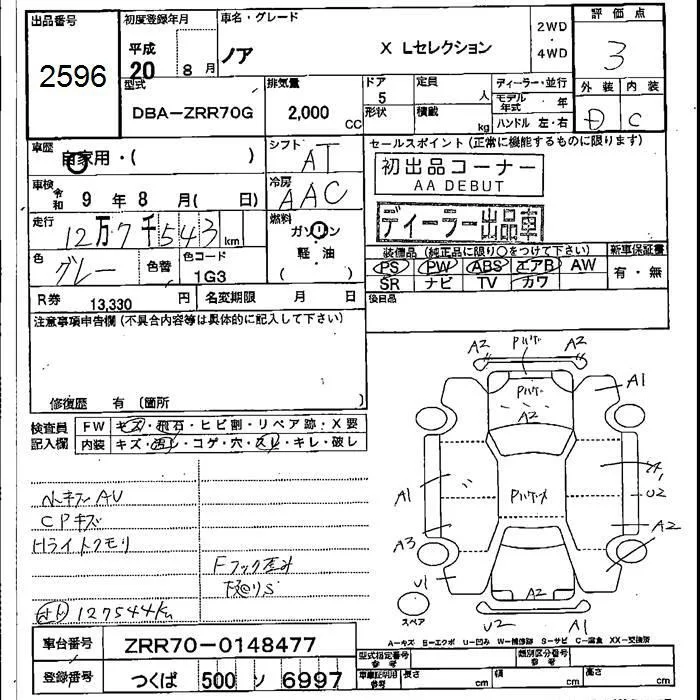 出品番号
2596
初度登録年月
平成
20
8月
車名・グレード
ノア
X Lセレクション
2WD
・
4WD
評価点
3
外装 内装
D C
型式
DBA-ZRR70G
排気量
2,000
CC
ドア
5
形状
定員
人
積載
kg
ディーラー・並行
モデル年式 年
ハンドル 左・右
車歴
自家用・( )
シフト
AT
車検
令和 9年 8月( 日)
冷房
AAC
走行
12万7千543 km
燃料
ガソリン
・
軽油
( )
色
グレー
色替
色コード
1G3
R券 13,330 円
名変期限 月 日
セールスポイント(正常に機能するものに限ります)
初出品コーナー
AA DEBUT
ディーラー出品車
装備品(純正品に限り○をつけて下さい)
PS PW ABS エアB AW
SR ナビ TV カワ
新車保証書
有・無
後日品
注意事項申告欄(不具合内容等は具体的に記入して下さい)
修復歴 有(箇所
検査員記入欄
FW キズ・飛石・ヒビ割・リペア跡・X要
内装 キズ・汚レ・コゲ・穴・スレ・キレ・破レ
ハンキズAU
CPキズ
Hライトクモリ
Fフック歪み
127544km
A2
A2
A1
A2
A1
U2
A1
A3
A2
U1
A2
U2
A1
スペア
A-キズ E-エクボ U-凹み W-補修跡 S-サビ C-腐食 XX-交換済
車台番号
ZRR70-0148477
登録番号
つくば 500 ソ 6997
型式指定番号
参考
類別区分番号
参考
車庫証明用
参考
長さ cm
幅 cm
高さ cm